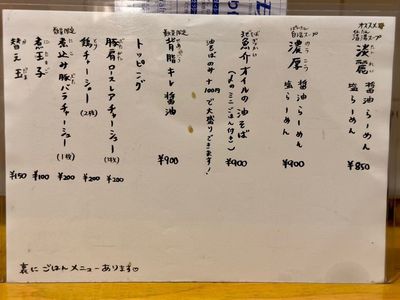 オススメ
清湯スープ
淡麗
醤油らーめん
塩らーめん
¥850
白湯スープ
濃厚
醤油らーめん
塩らーめん
¥900
魚介オイルの油そば
(〆のミニごはん付き)
¥900
油そばのみ+100円で大盛りできます!
数量限定
背脂キレ醤油
¥900
トッピング
豚肩ロースレアチャーシュー
¥200
鶏チャーシュー
(2枚)
¥200
数量限定
煮込み豚バラチャーシュー
(1枚)
¥200
煮玉子
¥100
替え玉
¥150
裏にごはんメニューあります♡